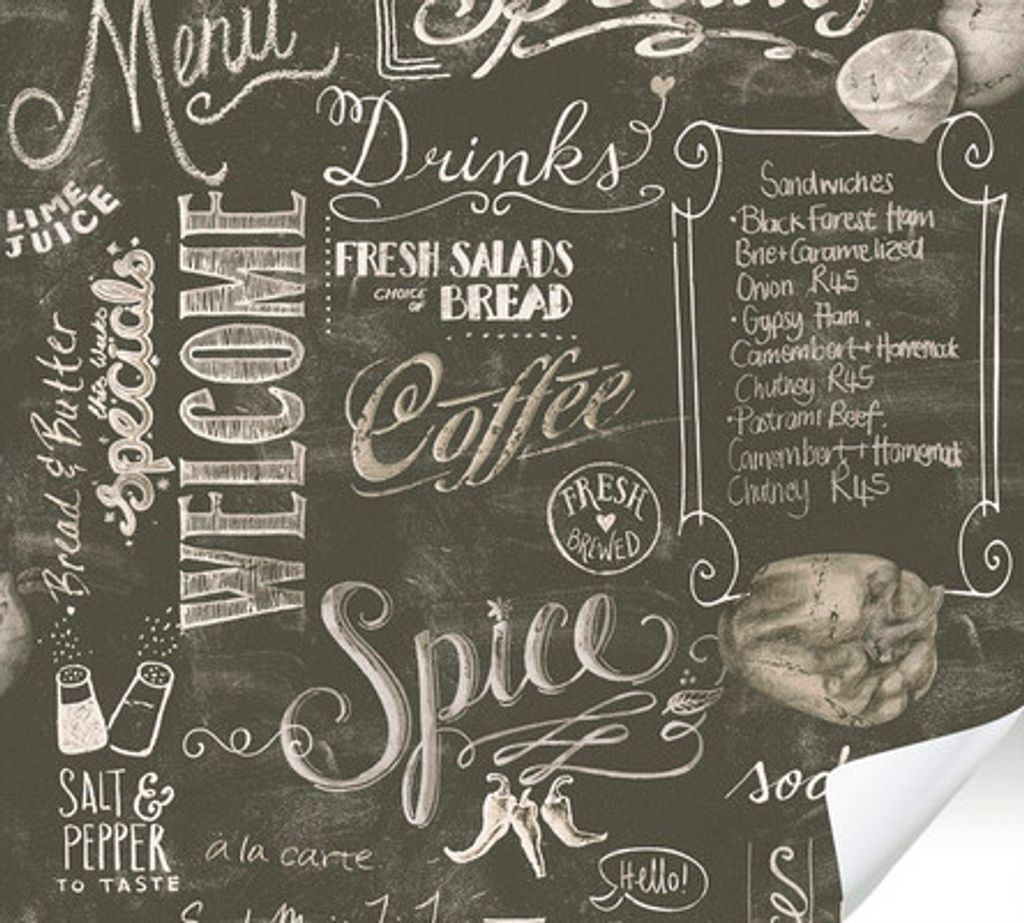 Menu
Drinks
LIME
JUICE
WELCOME
FRESH SALADS
CHOICE
OF
BREAD
this weeks
Specials
• Bread & Butter
Coffee
FRESH
BREWED
Sandwiches
• Black Forest Ham
Brie + Caramelized
Onion R45
• Gypsy Ham.
Camembert + Homemade
Chutney R45
• Pastrami Beef.
Camembert + Homemade
Chutney R45
Spice
SALT &
PEPPER
TO TASTE
à la carte
Hello!